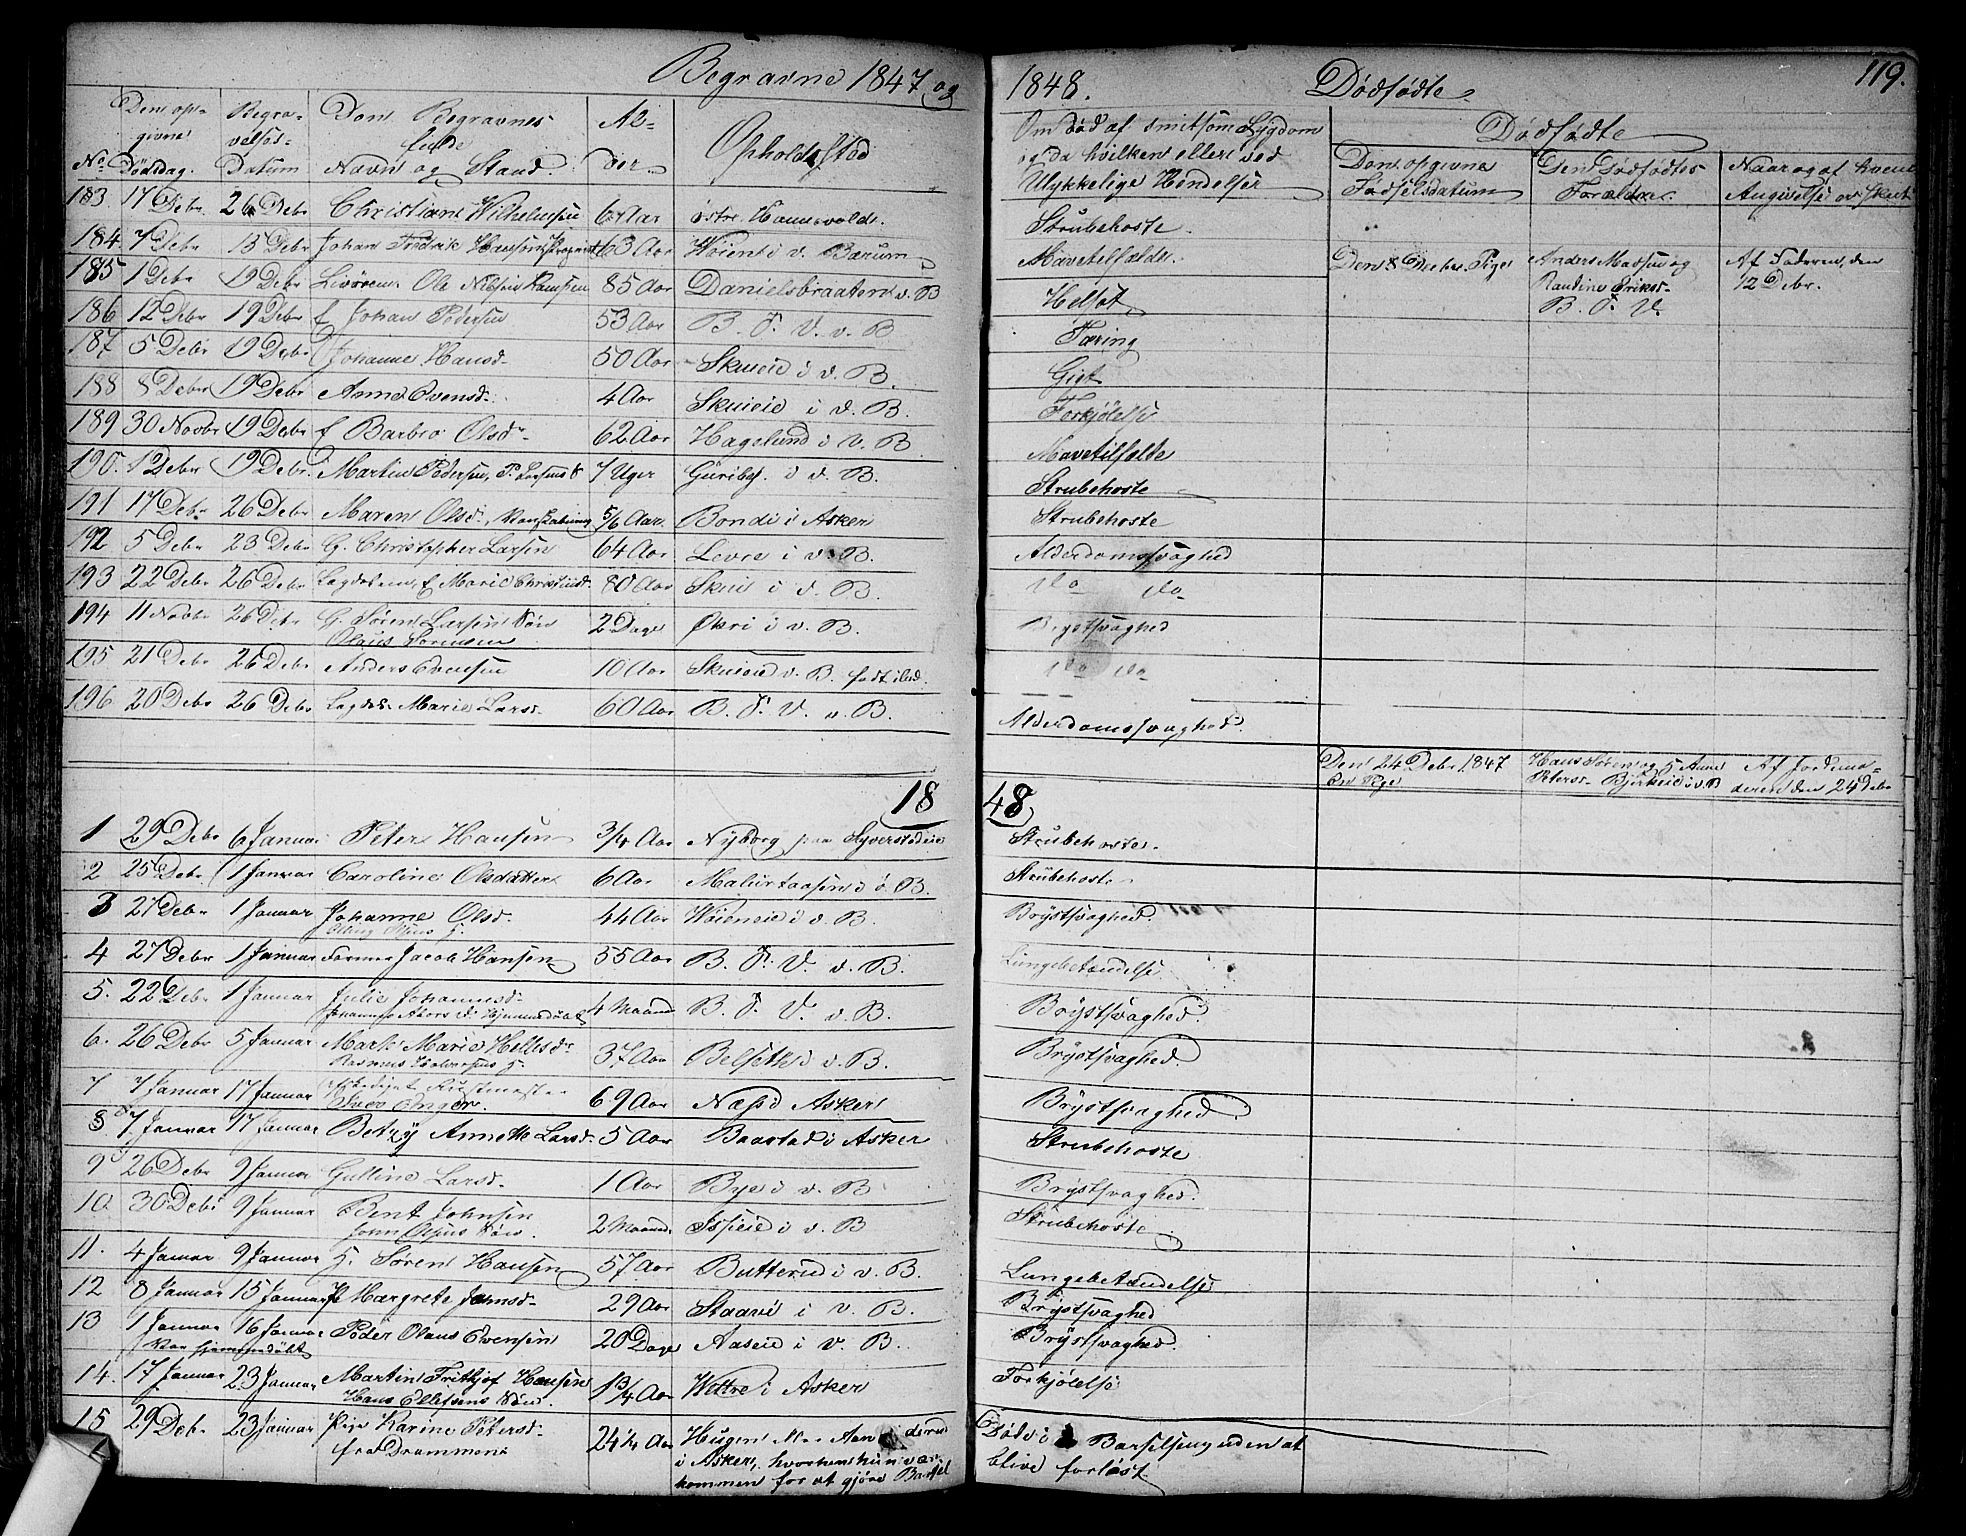 Begravne 1847 og 1848. Dødfødte 119.
No. Den opgivne Dödsdag. Begravelses-Datum Den Begravnes fulde Navn og Stand Alder Opholdssted Om död af smitsom Sygdom og da hvilken eller ved Ulykkelige Hendelser
Dødfødte
Den opgivne Födselsdatum Den Dödfödtes Forældre. Naar og af hvem Angivelse er skeet
183 17 Debr. 26 Debr Christian Wilhelmsen 6 Aar östre Strubehoste.
184 7 Debr 15 Debr Johan Fredrik Hansen 63 Aar Wöien i v. Bærum Mavetilfælde.
Den 8 Decbr. Pige Anders Madsen og Randine Eriksd. B. F. V. Af Faderen, den 12 Debr.
185 1 Debr 19 Debr Ole Nilsen 85 Aar Danielsbraaten v. B Helsot
186 12 Debr 19 Debr f Johan Pedersen 53 Aar B. F. V. v. B Tæring
187 5 Debr 19 Debr Johanne Hansd. 50 Aar Skuieie i v. B. Gigt
188 8 Debr 19 Debr Anne Evensd. 4 Aar Skuieie i v. B. Forkjölelse
189 30 Novbr 19 Debr f Barbro Olsdr 62 Aar Hagelund i v. B. Mavetilfælde
190. 12 Debr 19 Debr. Martin Pedersen, P. Larsens 7 Uger Guriby. i v. B. Strubehoste
191 17 Debr 26 Debr Maren Olsd. 5/6 Aar. Bondi i Asker Strubehoste
192 5 Debr 23 Debr G. Christopher Larsen 64 Aar Levre i v. B. Alderdomssvaghed
193 22 Debr 26 Debr Lagdslem f Marie Christiansd. 80 Aar Skui i v. B. do do
194 11 Novbr 26 Debr G. Sören Larsen Sön Olaus Sorensen 2 Dage Økri i v. B. Brystsvaghed
195 21 Debr 26 Debr Anders Evensen 10 Aar Skuieie v. B. do do
196 20 Debr 26 Debr Lagdsl. Marie Larsd. 60 Aar B. F. V. v. B. Alderdomssvaghed.
Den 24 Debr 1847 En Pige Hans Sören og Anne Petersd. Bjerkeie i v. B Af Jordemoderen den 24 Debr
1848
1 29 Debr 6 Januar Peter Hansen 3/4 Aar Nyborg paa Syverstadeie Strubehoste.
2 25 Debr 1 Januar Caroline Olsdatter 6 Aar i ö. B. Strubehoste
3 27 Debr 1 Januar Johanne Olsd. 44 Aar Wöieneie i v. B. Brystsvaghed.
4 27 Debr 1 Januar Jacob Hansen 55 Aar B. F. V. v. B. Lungebetændelse
5. 22 Debr 1 Januar Julie Johannesd. 4 Maaned B. F. V. v. B. Brystsvaghed.
6. 26 Debr 5 Januar Marie 37 Aar Belset i v. B. Brystsvaghed
7 7 Januar 17 Januar 69 Aar Næs i Asker Brystsvaghed
8 7 Januar 17 Januar Betzy Annette Larsd. 5 Aar Baastad i Asker Strubehoste
9 26 Debr 9 Januar Gulline Larsd. 1 Aar Bye i v. B Brystsvaghed.
10. 30 Debr 9 Januar Bent Johnsen John Sön. 2 Maaned. i v. B Strubehoste
11. 4 Januar 9 Januar G. Sören Hansen 57 Aar Butterud i v. B. Lungebetændelse
12 8 Januar 15 Januar Margrete Jensd. 29 Aar Staavi i v. B. Brystsvaghed
13 1 Januar 16 Januar Peder Olaus Evensen 20 Dage Aaseie i v. B. Brystsvaghed.
Var hjemmedöbt
14. 17 Januar 23 Januar Martin Frithjof Hansen Hans Ellefsens Sön. 1 3/4 Aar Wettre i Asker Forkjölelse
15 29 Debr 23 Januar Pige Karine Petersd. fra Drammen 24 1/4 Aar i Asker, hvorhen hun var kommen for at gjöre Barsel Död i Barselseng uden at blive forlöst.